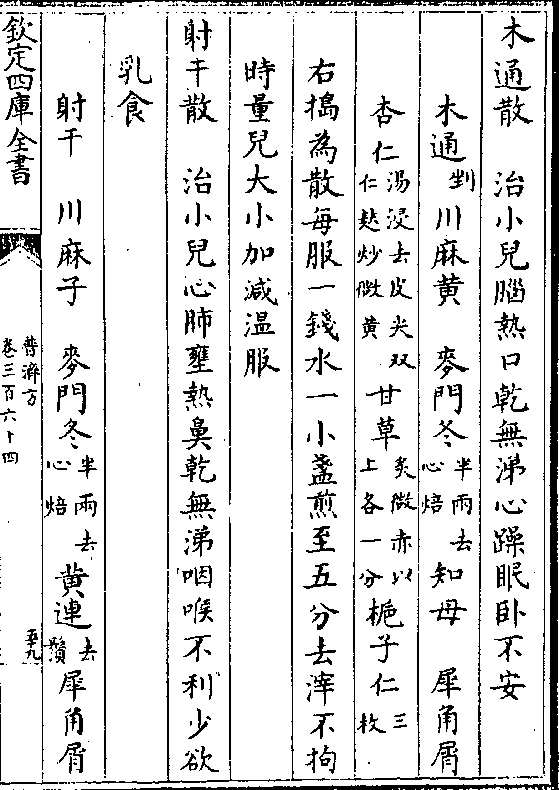 木通散　治小兒腦熱口乾無涕心躁眠卧不安
木通剉川麻黄　麥門冬半兩去心焙知母　犀角屑
杏仁湯浸去皮尖双仁麩炒微黄甘草炙微赤以上各一分梔子仁三枚
右搗為散每服一錢水一小盞煎至五分去滓不拘
時量兒大小加減温服
射干散　治小兒心肺壅熱鼻乾無涕咽喉不利少欲
乳食
射干　川麻子　麥門冬半兩去心焙黄連去鬚犀角屑
欽定四庫全書
普濟方
卷三百六十四
五九